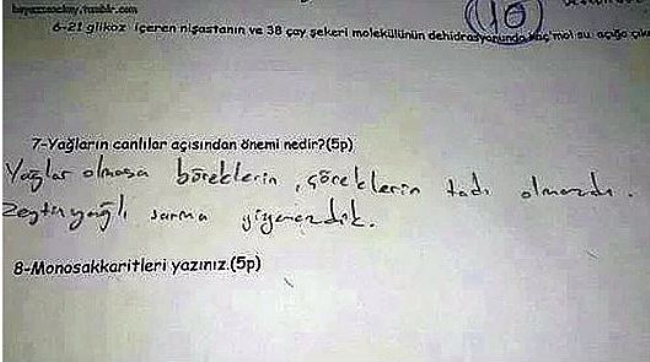 10
6-21 glikoz içeren nişastanın ve 38 çay şekeri molekülünün dehidrasyonunda kaç mol su açığa çıka
7-Yağların canlılar açısından önemi nedir?(5p)
Yağlar olmasa böreklerin, çöreklerin tadı olmazdı.
Zeytinyağlı sarma yiyemezdik.
8-Monosakkaritleri yazınız.(5p)